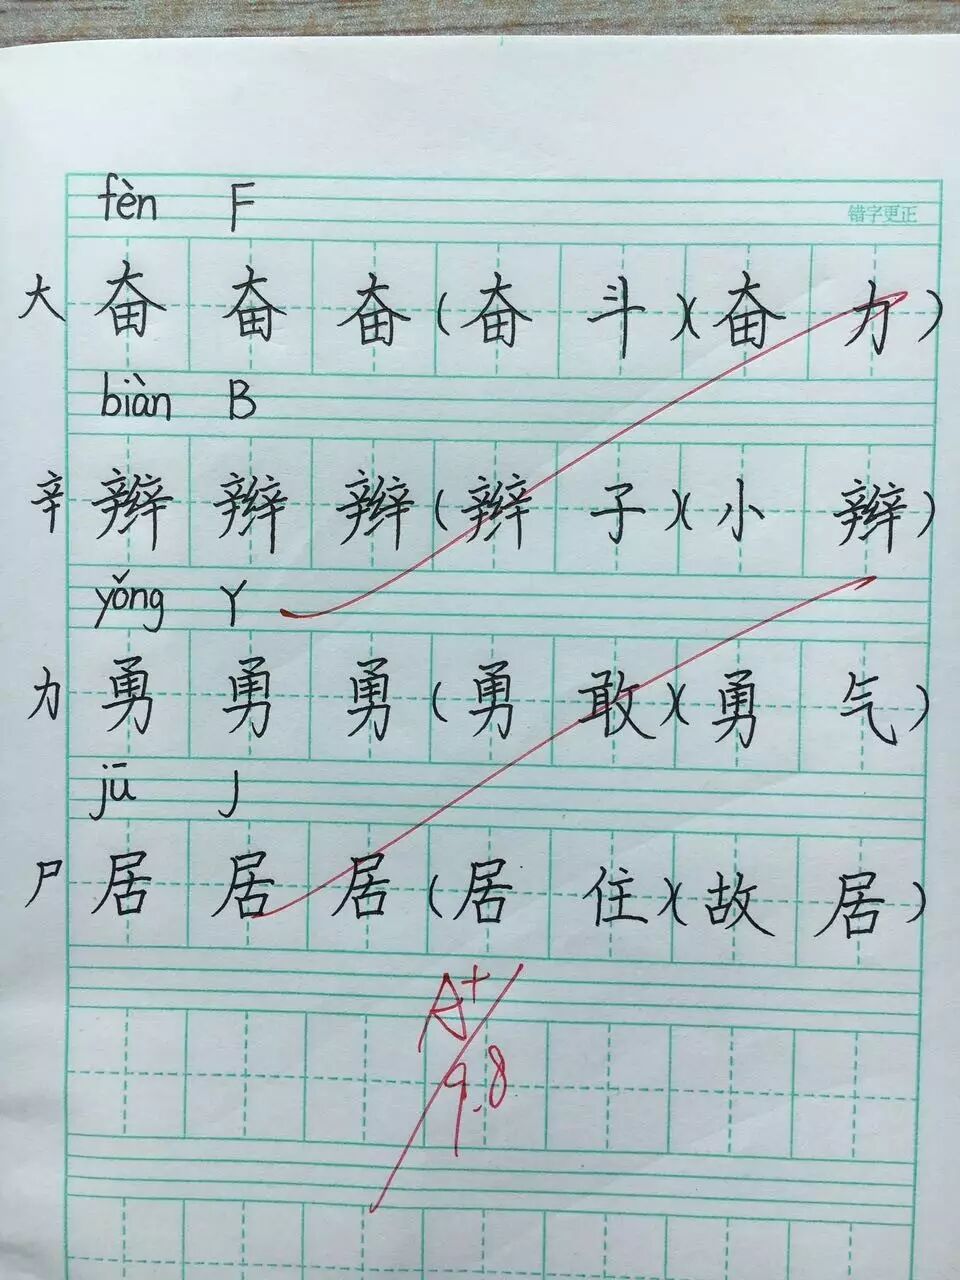 fèn F 错字更正
大 奋 奋 奋 (奋 斗)(奋 力)
biàn B
辛 辫 辫 辫 (辫 子)(小 辫)
yǒng Y
力 勇 勇 勇 (勇 敢)(勇 气)
jū J
尸 居 居 居 (居 住)(故 居)
A+
9.8